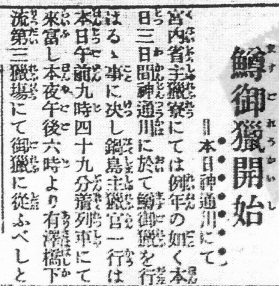 鱒御獵開始
=本日神通川にて
宮内省主獵寮にては例年の如く本
日三日間神通川に於て鱒御獵を行
はるゝ事に決し鍋島主獵官一行は
本日午前九時四十九分着列車にて
來富し本夜午後六時より有澤橋下
流第三獵場にて御獵に從ふべしと